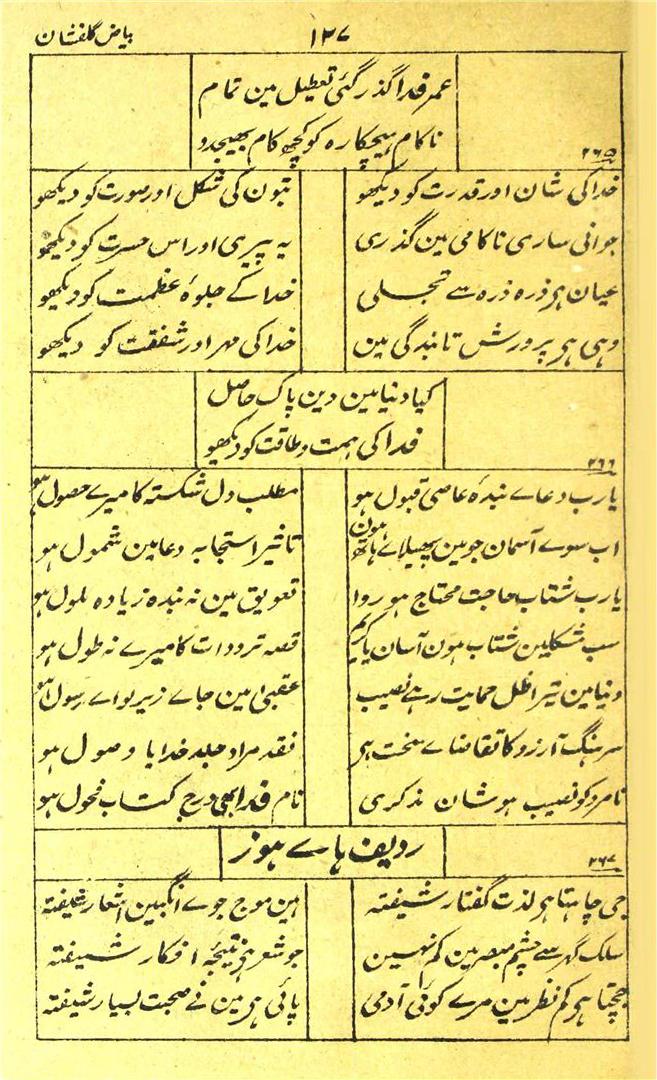 بیاض گلفشان ۱۳۷
عمر فدا گذر گئی تعطیل مین تمام
ناکام ہیچکارہ کو کچھ کام بھیجدو
۲۶۵
خدا کی شان اور قدرت کو دیکھو بتون کی شکل اور صورت کو دیکھو
جوانی ساری ناکامی مین گذری یہ پیری اور اس حسرت کو دیکھو
عیان ہر ذرہ ذرہ سے تجلی خدا کے جلوۂ عظمت کو دیکھو
وہی ہر پرورش تا بندگی مین خدا کی مہر اور شفقت کو دیکھو
کیا دنیا مین دین پاک حاصل
فدا کی ہمت و طاقت کو دیکھو
۲۶۶
یارب دعاے بندۂ عاصی قبول ہو مطلب دل شکستہ کا میرے حصول ہو
اب سوے آسمان جو مین پھیلاے ہاتھ ہون تاثیر استجابہ دعا مین شمول ہو
یارب شتاب حاجت محتاج ہو روا تعویق مین نہ بندہ زیادہ ملول ہو
سب مشکلین شتاب ہون آسان یا کریم قصہ ترددات کا میرے نہ طول ہو
دنیا مین تیرا ظل حمایت رہے نصیب عقبیٰ مین جاے زیر لواے رسول ہو
سرہنگ آرزو کا تقاضاے سخت ہی نقد مراد جلد خدایا وصول ہو
نامرد کو نصیب ہو شان مذکری نام فدا بھی درج کتاب فحول ہو
ردیف ہاے ہوز
۲۶۷
جی چاہتا ہو لذت گفتار شیفتہ ہین موج جوے انگبین اشعار شیفتہ
سلک گہر سے چشم مبصر مین کم نہین جو شعر ہو نتیجۂ افکار شیفتہ
جچتا ہو کم نظر مین مرے کوئی آدمی پائی ہی مین نے صحبت بسیار شیفتہ